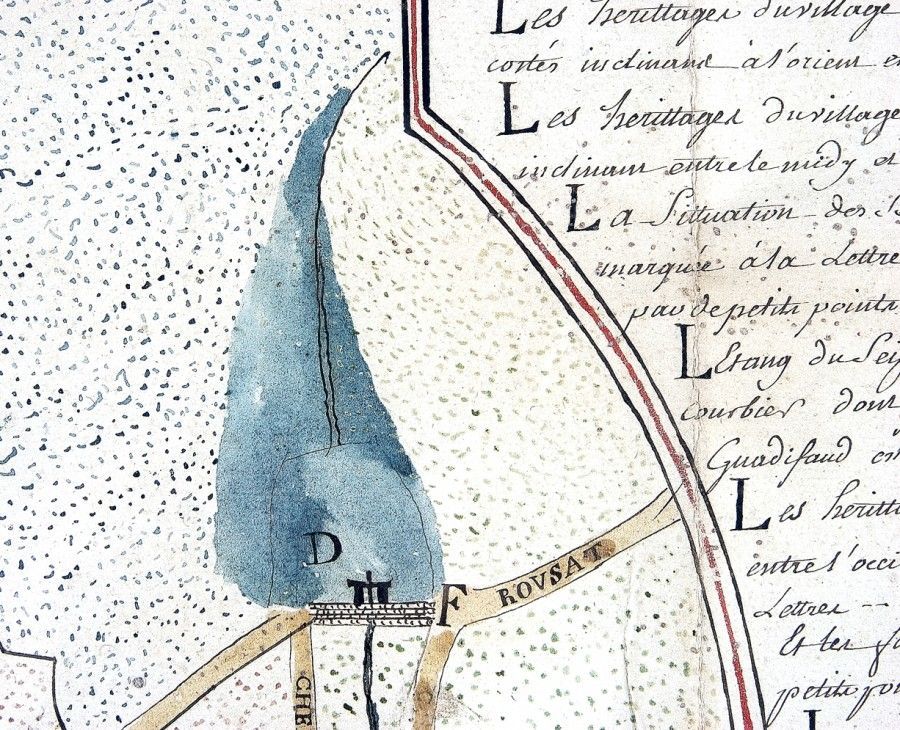 Les herittages du village
costés inclinans à l'orient et
Les herittages du village
inclinant entre le midy et
La Situation des
marquée à la Lettre
par de petits points
L Etang du Sei
courbier dont
Guadifaud
Les heritta
entre l'occi
Lettres --
Et les
petits poi
L
D
F
ROUSAT
CHE